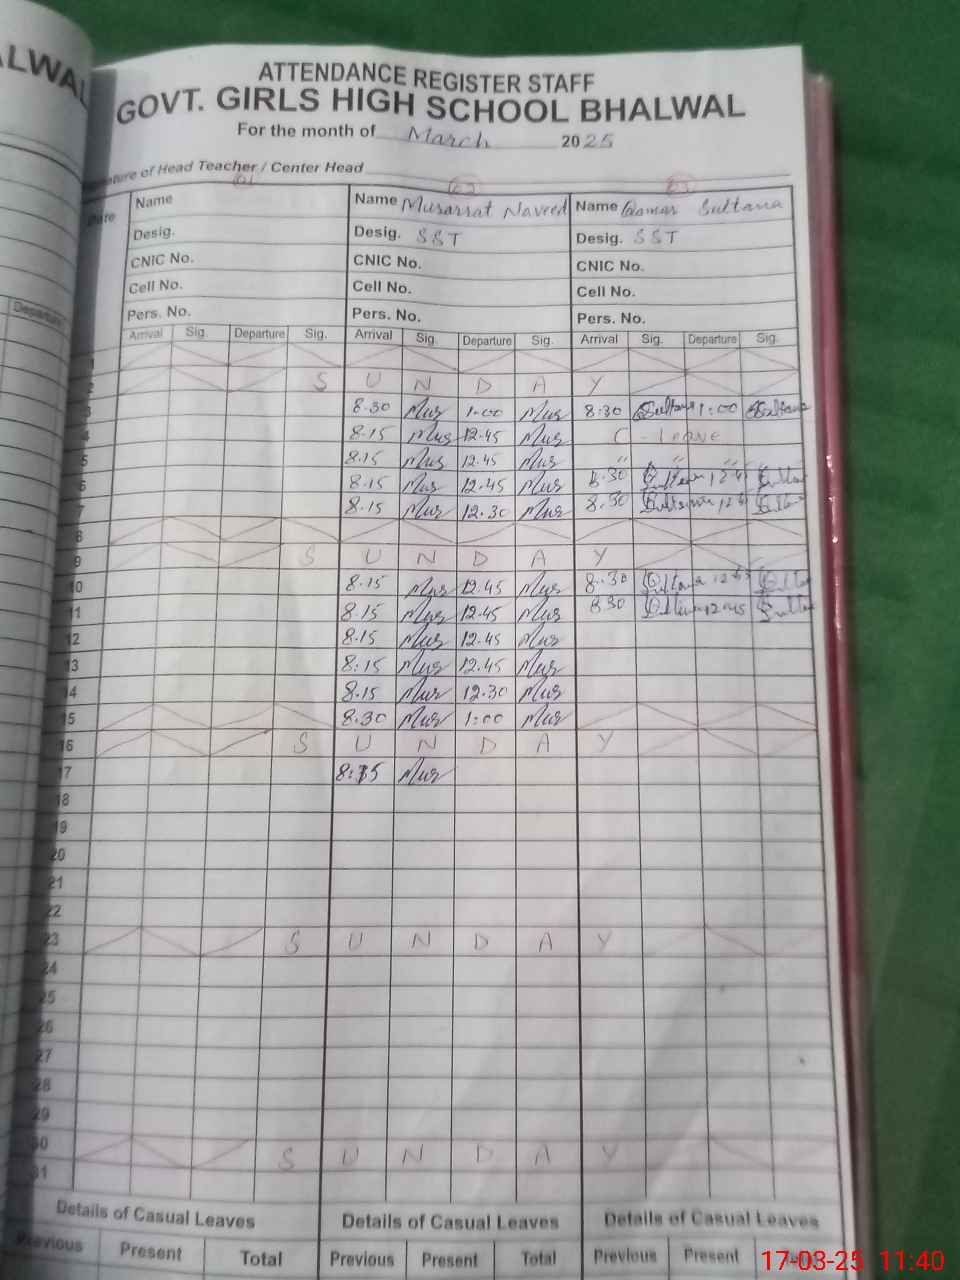 ALWAL
ATTENDANCE REGISTER STAFF
GOVT. GIRLS HIGH SCHOOL BHALWAL
For the month of March 2025
Signature of Head Teacher / Center Head
01 02 03
Date Name Name Musarrat Naveed Name Qamar Sultana
Desig. Desig. SST Desig. SST
CNIC No. CNIC No. CNIC No.
Cell No. Cell No. Cell No.
Departure Pers. No. Pers. No. Pers. No.
Arrival Sig. Departure Sig. Arrival Sig. Departure Sig. Arrival Sig. Departure Sig.
1
2 S U N D A Y
3 8.30 Mus 1.00 Mus 8:30 Sultana 1:00 Sultana
4 8.15 Mus 12.45 Mus C - leave
5 8.15 Mus 12.45 Mus " " "
6 8.15 Mus 12.45 Mus 8.30 Sultana 12.45 Sultana
7 8.15 Mus 12.30 Mus 8.30 Sultana
8
9 S U N D A Y
10 8.15 Mus 12.45 Mus 8.30 Sultana 12.45
11 8.15 Mus 12.45 Mus 8.30 Sultana 12.45 Sultana
12 8.15 Mus 12.45 Mus
13 8:15 Mus 12.45 Mus
14 8.15 Mus 12.30 Mus
15 8.30 Mus 1:00 Mus
16 S U N D A Y
17 8:15 Mus
18
19
20
21
22
23 S U N D A Y
24
25
26
27
28
29
30 S U N D A Y
31
Details of Casual Leaves Details of Casual Leaves Details of Casual Leaves
Previous Present Total Previous Present Total Previous Present Total
17-03-25 11:40